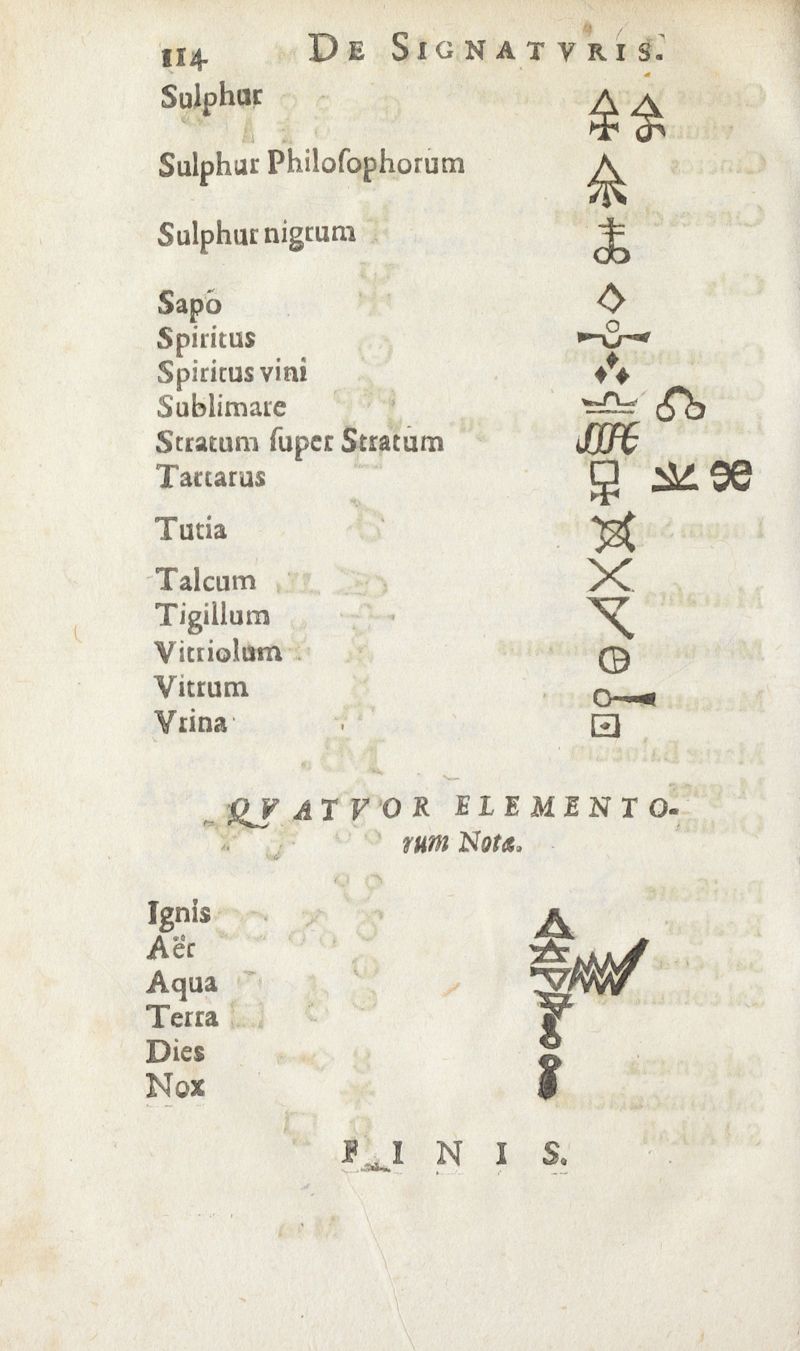 114 DE SIGNATVRIS.
Sulphur
Sulphur Philoſophorum
Sulphur nigrum
Sapo
Spiritus
Spiritus vini
Sublimare
Stratum ſuper Stratum
Tartarus
Tutia
Talcum
Tigillum
Vitriolum
Vitrum
Vrina
QVATVOR ELEMENTO-
rum Notæ.
Ignis
Aër
Aqua
Terra
Dies
Nox
FINIS.